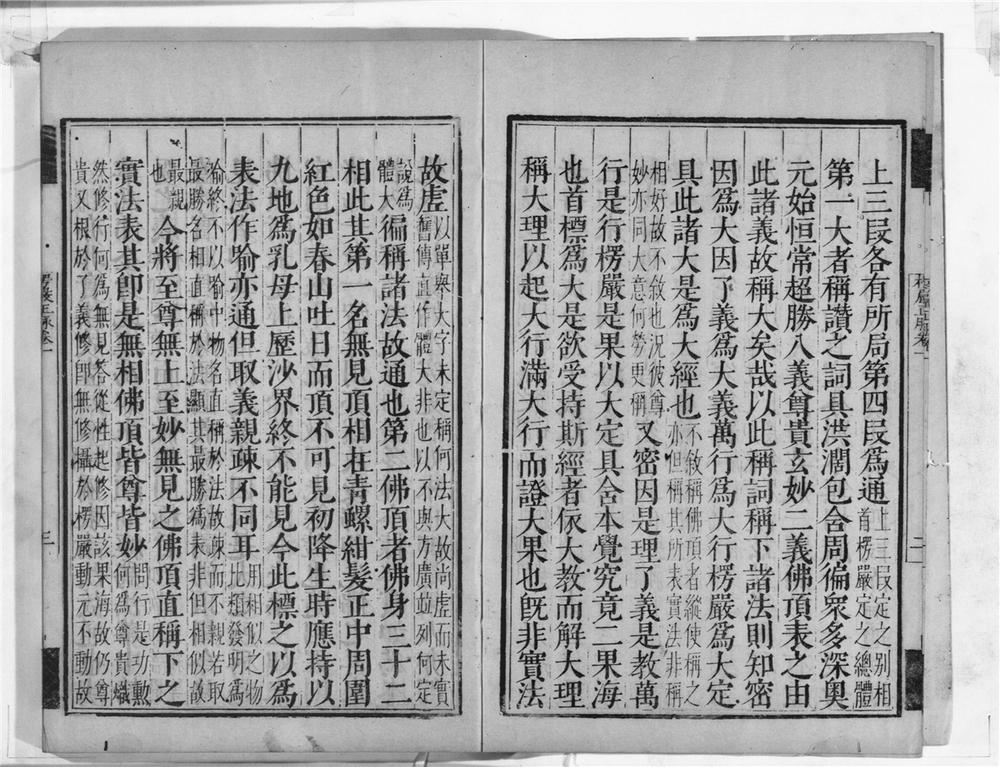 上三段各有所局第四段爲通
上三段定之別相
首楞嚴定之總體
第一大者稱讚之詞具洪濶包含周徧衆多深奧
元始恒常超勝八義尊貴玄妙二義佛頂表之由
此諸義故稱大矣哉以此稱詞稱下諸法則知密
因爲大因了義爲大義萬行爲大行楞嚴爲大定
具此諸大是爲大經也
不敘稱佛頂者縱使稱之
亦但稱其所表實法非稱
相好故不敘也況彼尊
妙亦同大意何勞更稱
又密因是理了義是教萬
行是行楞嚴是果以大定具含本覺究竟二果海
也首標爲大是欲受持斯經者依大教而解大理
稱大理以起大行滿大行而證大果也旣非實法
故虛
以單舉大字未定稱何法大故尚虛而未實
舊傳直作體大非也以不與方廣竝列何定
說爲
體大
徧稱諸法故通也第二佛頂者佛身三十二
相此其第一名無見頂相在青螺紺髮正中周圍
紅色如春山吐日而頂不可見初降生時應持以
九地爲乳母上歷沙界終不能見今此標之以爲
表法作喻亦通但取義親疎不同耳
用相似之物
比類發明爲
喻終不以喻中物名直稱於法故疎而不親若取
最勝名相直稱於法顯其最勝爲表非但相似故
最親
也
今將至尊無上至妙無見之佛頂直稱下之
實法表其卽是無相佛頂皆尊皆妙
問行是功勲
何爲尊貴熾
然修行何爲無見答從性起修因該果海故仍尊
貴又根於了義修卽無修攝於楞嚴動元不動故
楞嚴正脈卷一
二
楞嚴正脈卷一
三